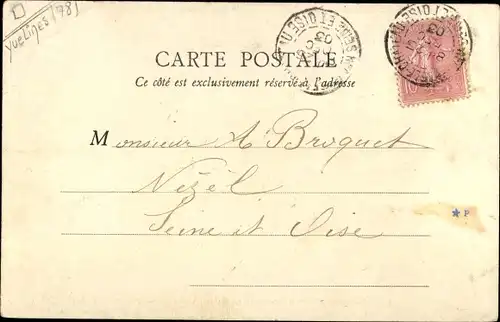 Yvelines (78)
CARTE POSTALE
Ce côté est exclusivement réservé à l'adresse
SEINE ET OISE
03
SEINE ET OISE
03
10
Monsieur A Broquet
Nézél
Seine et Oise
* P